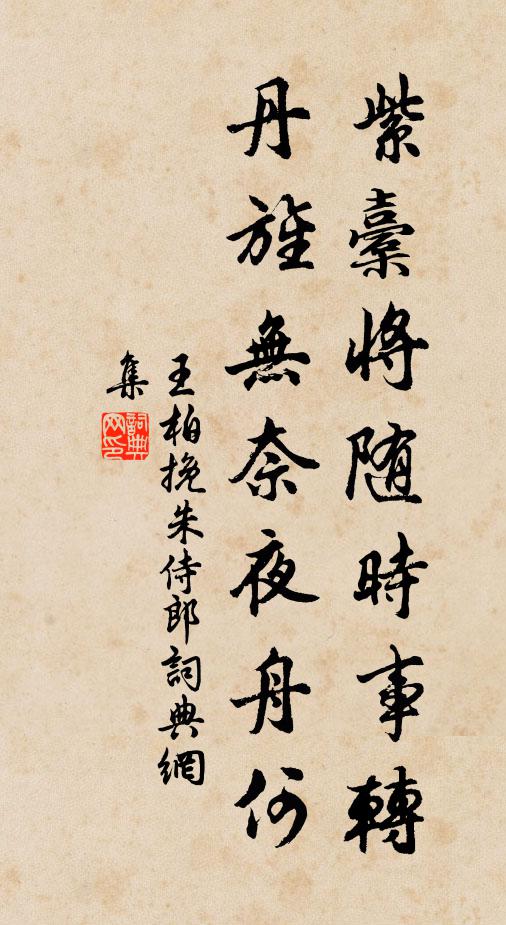 紫橐將随時事轉
丹旌無奈夜舟何
王柏挽朱侍郎詞典網
集
詞典網印